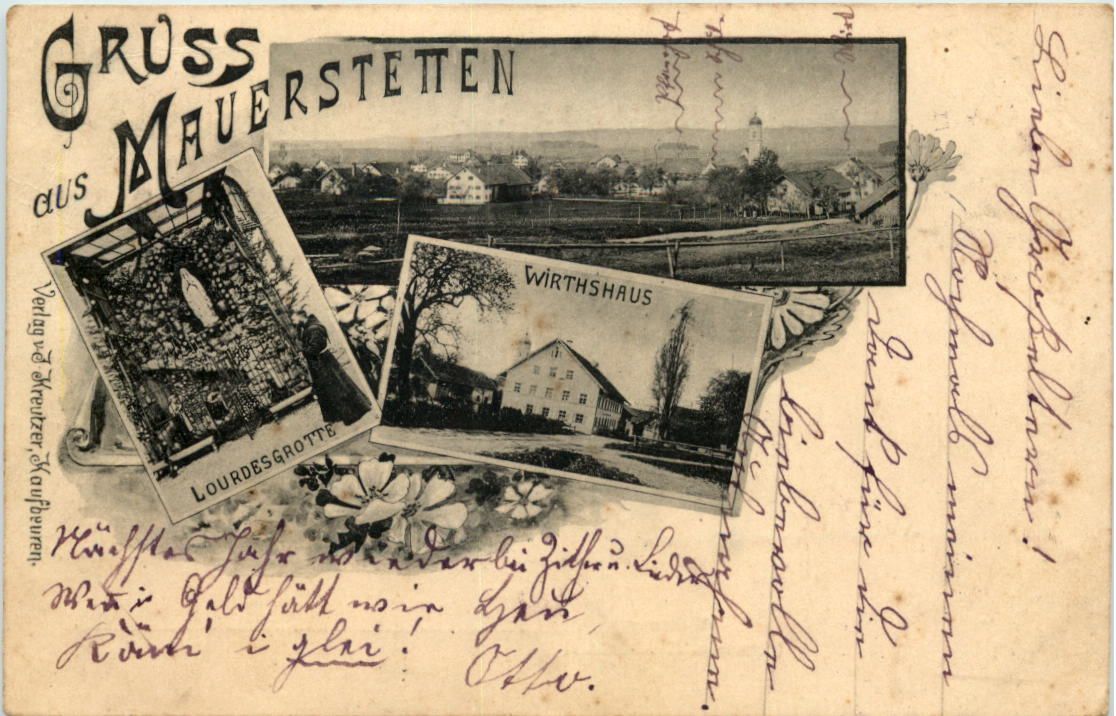 GRUSS
aus MAUERSTETTEN
WIRTHSHAUS
LOURDESGROTTE
Verlag v. J. Kreutzer, Kaufbeuren.
Lieben Großeltern!
Nochmals meinen
Dank für die
liebevolle
Aufnahme.
Nächstes Jahr wieder bei Zither u. Lieder
Wenn i Geld hätt wie Heu,
Käm' i glei!
Otto.